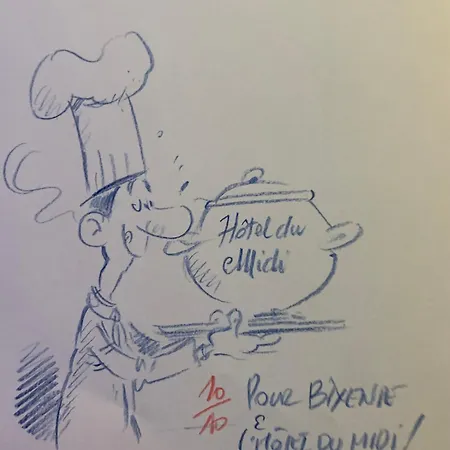 Hôtel du
Midi
10
10
POUR BIXENTE
&
L'HÔTEL DU MIDI!